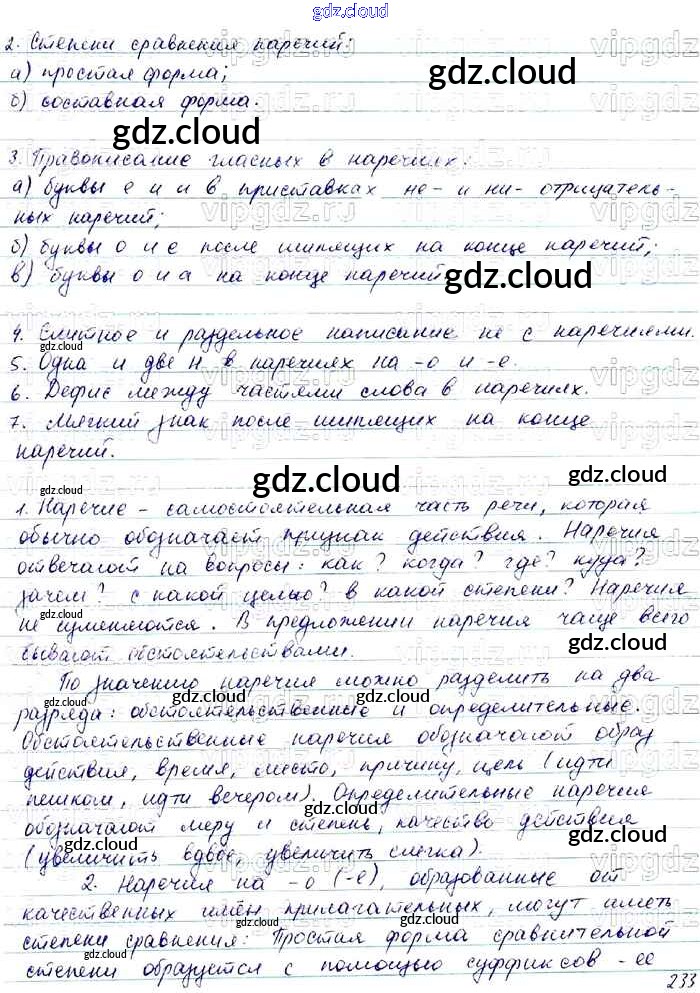 gdz.cloud
2. Степени сравнения наречий:
а) простая форма;
б) составная форма.
3. Правописание гласных в наречиях:
а) буквы е и и в приставках не- и ни- отрицатель-
ных наречий;
б) буквы о и е после шипящих на конце наречий;
в) буквы о и а на конце наречий
4. Слитное и раздельное написание не с наречиями.
5. Одна и две н в наречиях на -о и -е.
6. Дефис между частями слова в наречиях.
7. Мягкий знак после шипящих на конце
наречий.
1. Наречие - самостоятельная часть речи, которая
обычно обозначает признак действия. Наречия
отвечают на вопросы: как? когда? где? куда?
зачем? с какой целью? в какой степени? Наречия
не изменяются. В предложении наречия чаще всего
бывают обстоятельствами.
По значению наречия можно разделить на два
разряда: обстоятельственные и определительные.
Обстоятельственные наречия обозначают образ
действия, время, место, причину, цель (идти
пешком, идти вечером). Определительные наречия
обозначают меру и степень, качество действия
(увеличить вдвое, увеличить слегка).
2. Наречия на -о (-е), образованные от
качественных имён прилагательных, могут иметь
степени сравнения: Простая форма сравнительной
степени образуется с помощью суффиксов -ее
233